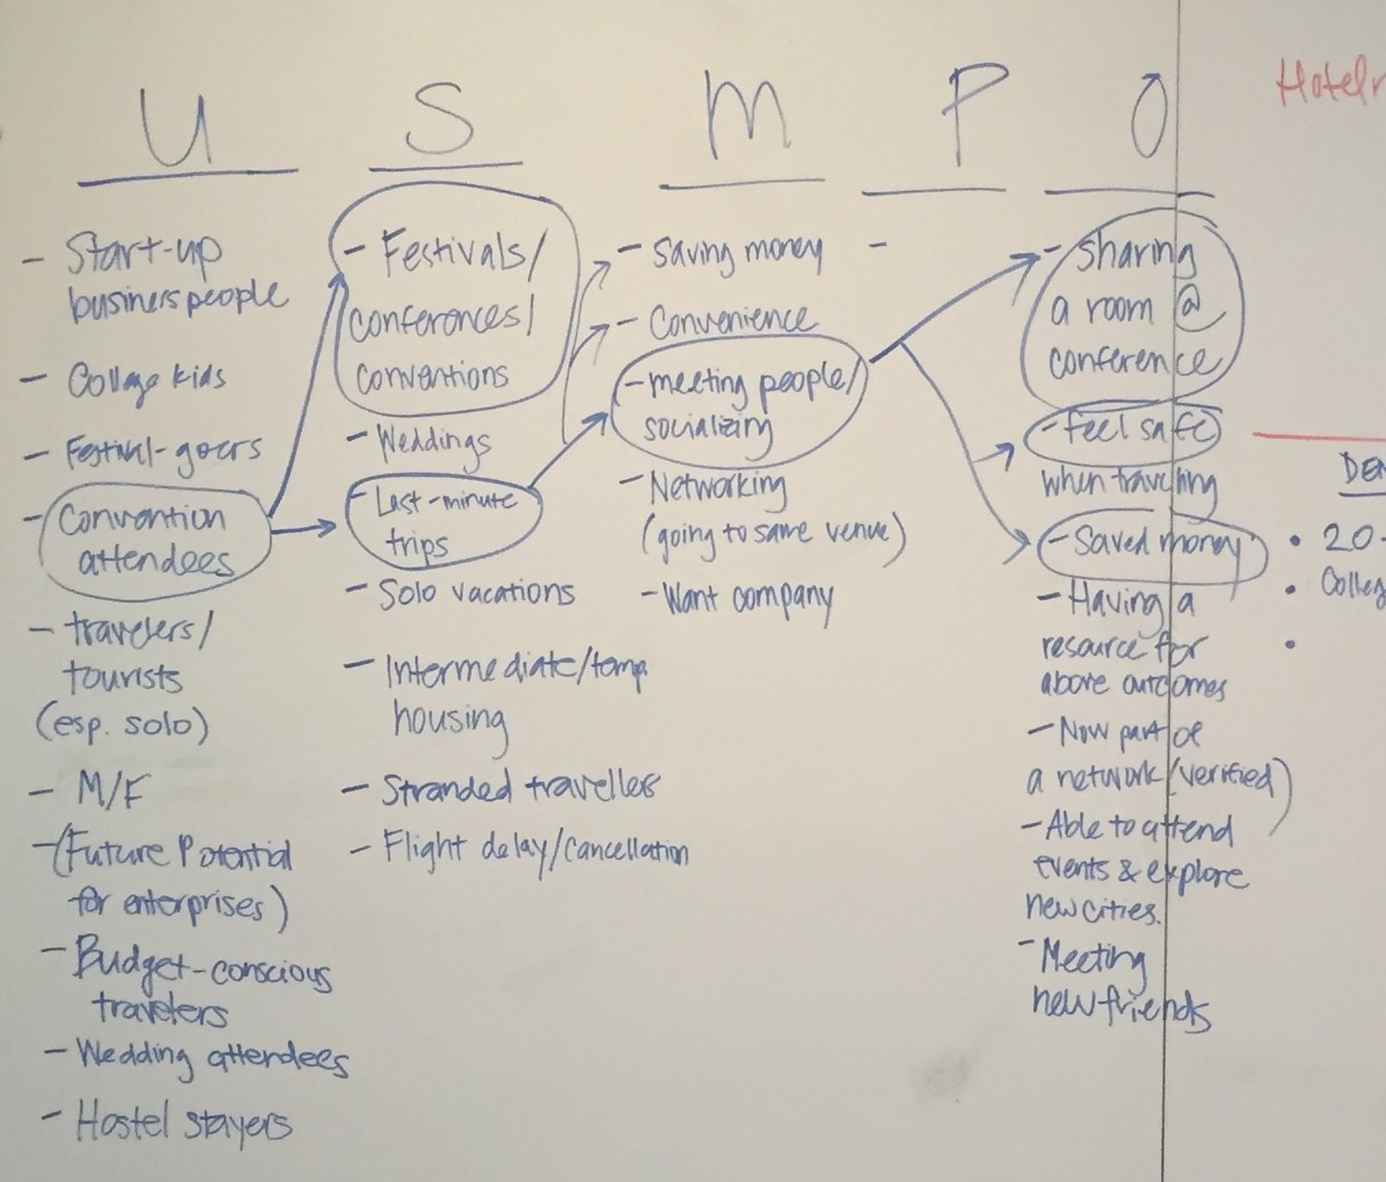 U
S
M
P
O
Hoteln
- Start-up
businesspeople
- College kids
- Festival-goers
- Convention
attendees
- travelers/
tourists
(esp. solo)
- M/F
- (Future Potential
for enterprises)
- Budget-conscious
travelers
- Wedding attendees
- Hostel stayers
- Festivals/
conferences/
conventions
- Weddings
- Last-minute
trips
- Solo vacations
- Intermediate/temp.
housing
- Stranded travellers
- Flight delay/cancellation
- Saving money
- Convenience
- meeting people/
socializing
- Networking
(going to same venue)
- Want company
-
- sharing
a room @
conference
- feel safe
when traveling
- Saved money
- Having a
resource for
above outcomes
- Now part of
a network (verified)
- Able to attend
events & explore
new cities.
- Meeting
new friends
DEM
• 20-
• Colleg
•